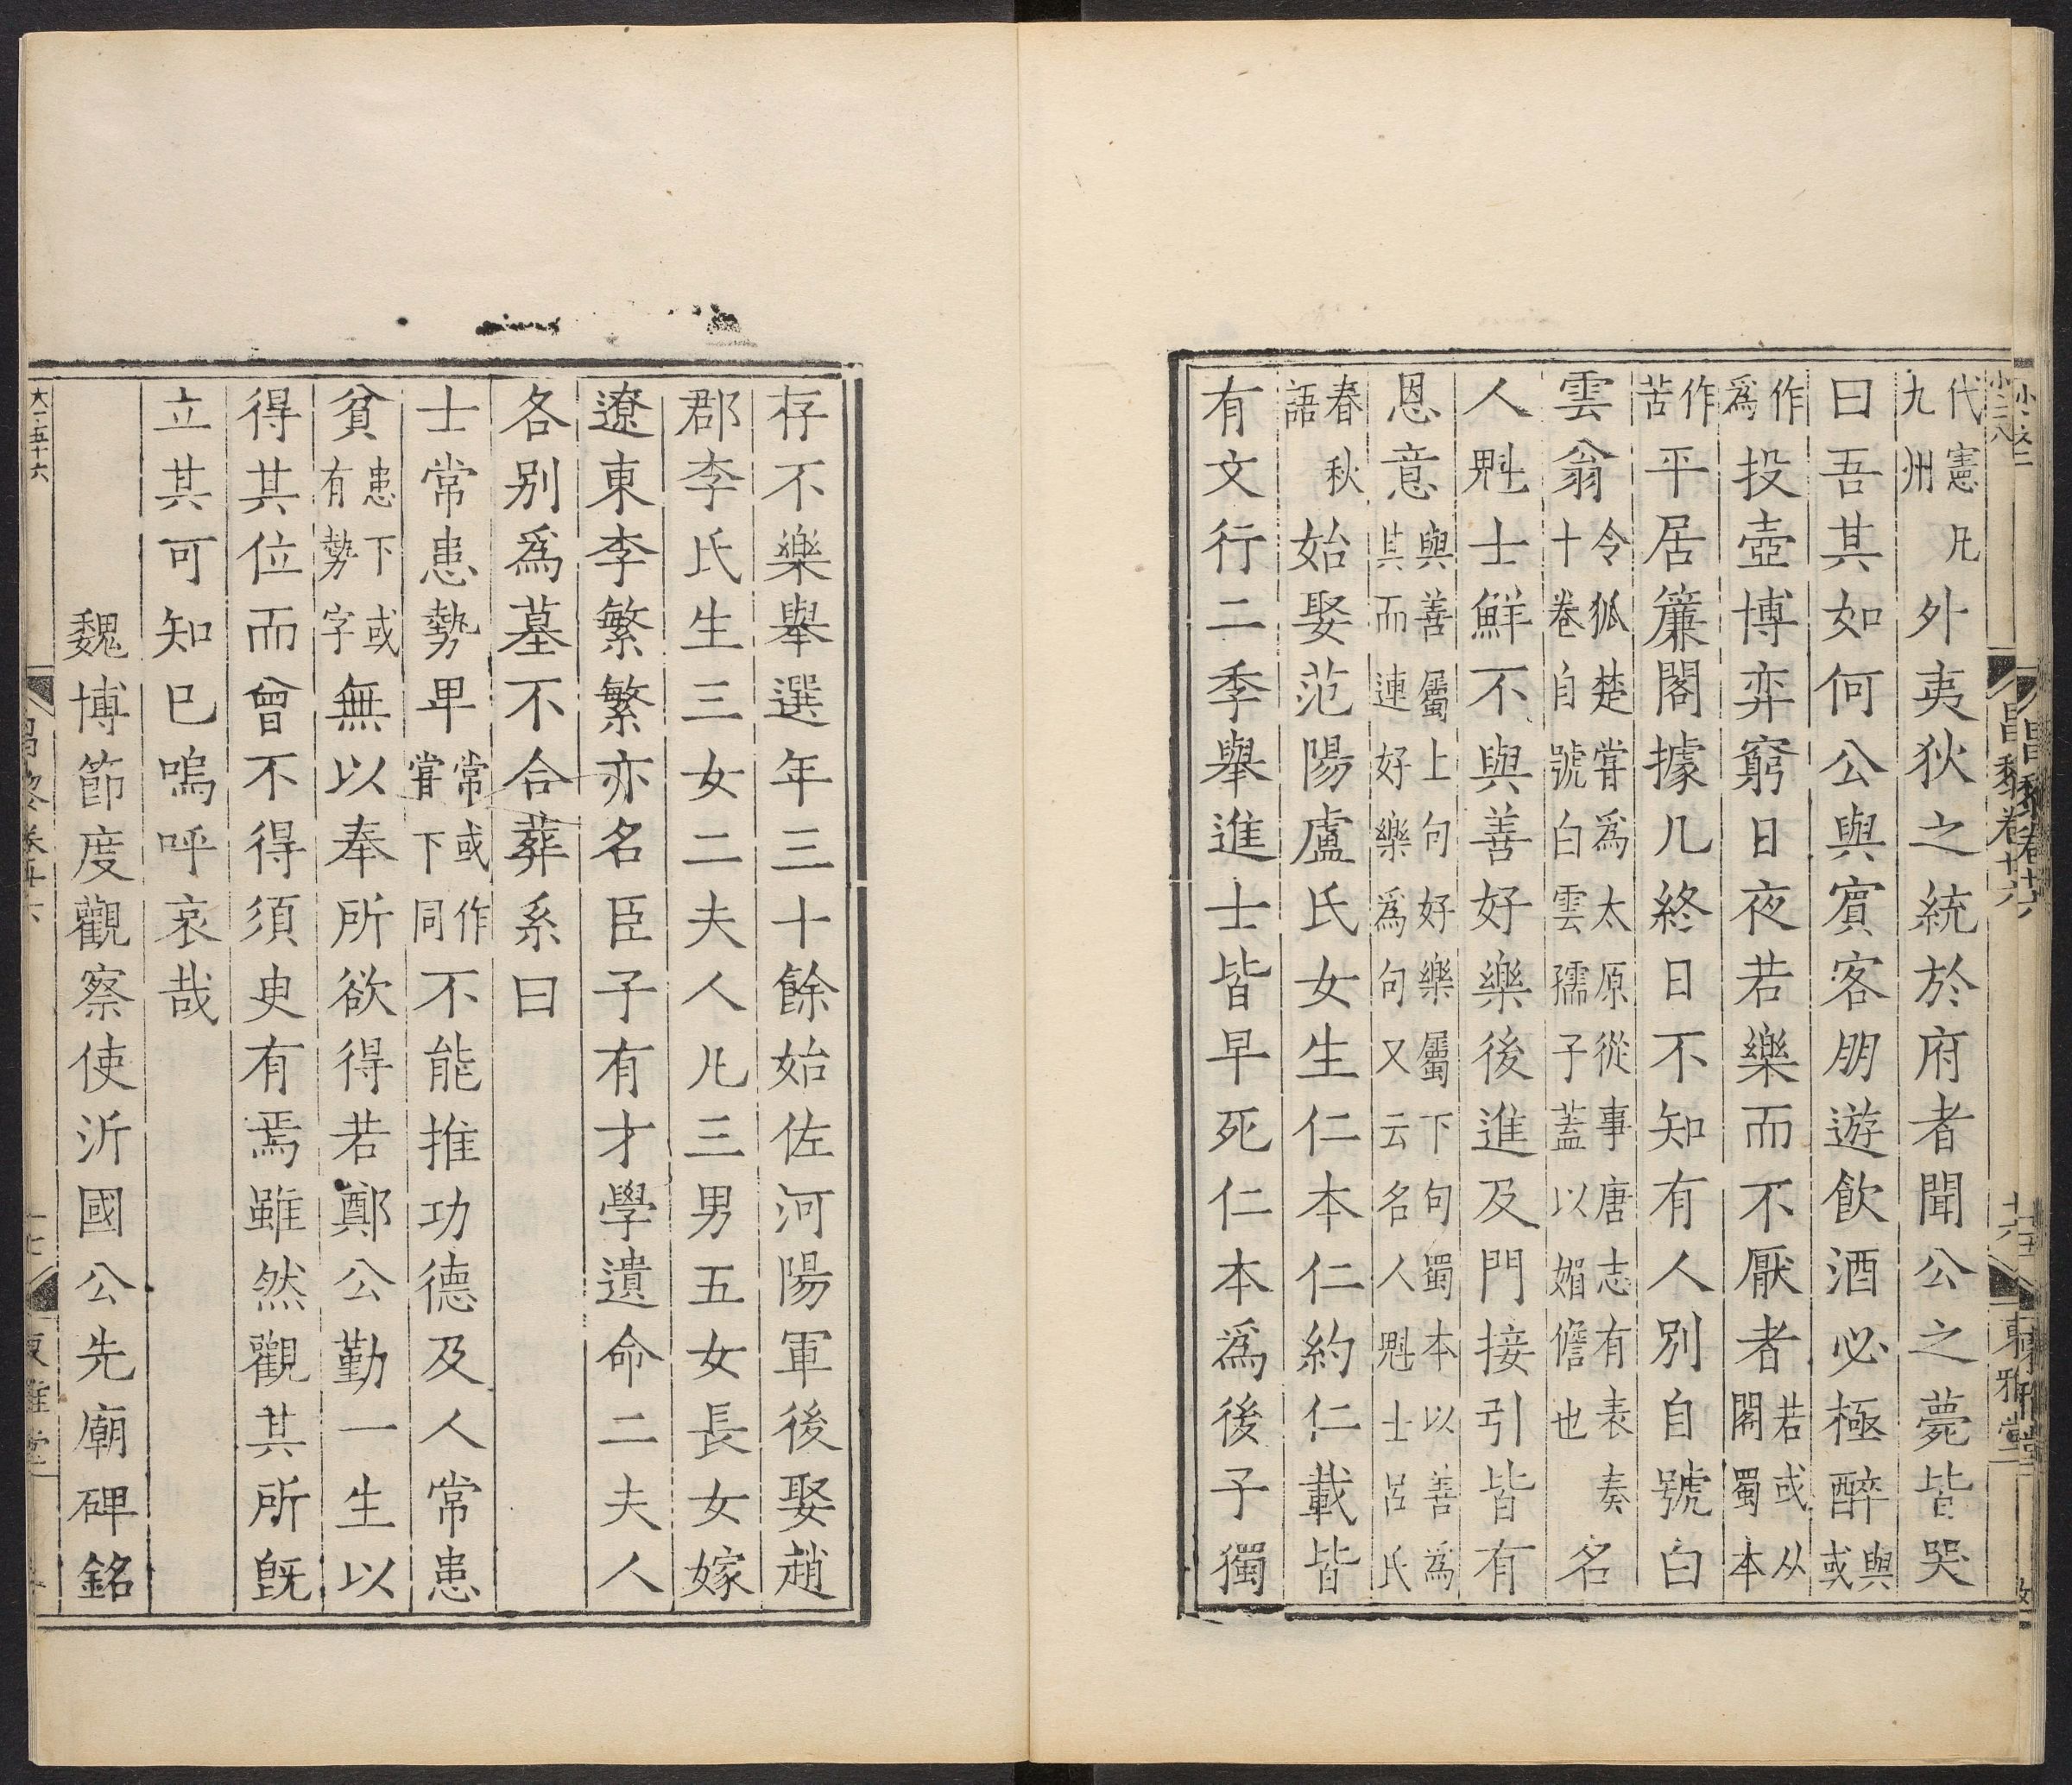 昌黎卷廿六 十六 東雅堂
代憲凡九州外夷狄之統於府者聞公之薨皆哭
曰吾其如何公與賓客朋遊飲酒必極醉與或
作爲投壺博弈窮日夜若樂而不厭者若或从閣蜀本
作苦平居簾閣據几終日不知有人別自號白
雲翁令狐楚嘗爲太原從事唐志有表奏十卷自號白雲孺子蓋以媚儋也名
人魁士鮮不與善好樂後進及門接引皆有
恩意與善屬上句好樂屬下句蜀本以善爲其而連好樂爲句又云名人魁士呂氏
春秋語始娶范陽盧氏女生仁本仁約仁載皆
有文行二季舉進士皆早死仁本爲後子獨
存不樂舉選年三十餘始佐河陽軍後娶趙
郡李氏生三女二夫人凡三男五女長女嫁
遼東李繁繁亦名臣子有才學遺命二夫人
各别爲墓不合葬系曰
士常患勢卑常或作嘗下同不能推功德及人常患
貧患下或有勢字無以奉所欲得若鄭公勤一生以
得其位而曾不得須臾有焉雖然觀其所既
立其可知已嗚呼哀哉
魏博節度觀察使沂國公先廟碑銘